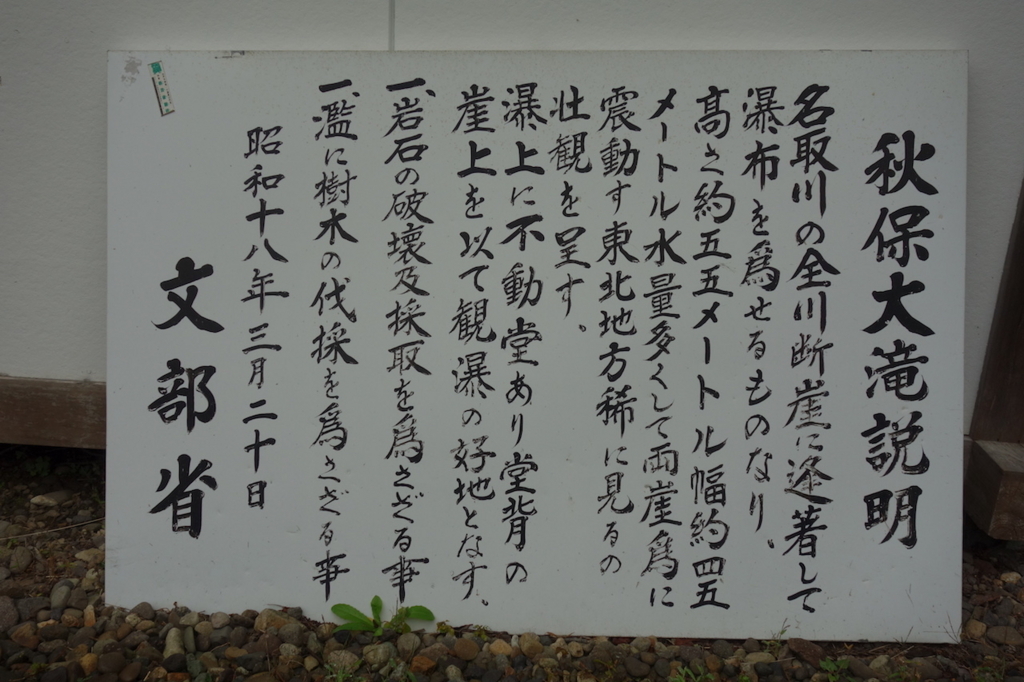 秋保大滝説明
名取川の全川断崖に逢著して
瀑布を爲せるものなり、
髙さ約五五メートル幅約四五
メートル水量多くして両崖爲に
震動す東北地方稀に見るの
壮観を呈す。
瀑上に不動堂あり堂背の
崖上を以て観瀑の好地となす。
一、岩石の破壊及採取を爲さざる事
一、濫に樹木の伐採を爲さざる事
昭和十八年三月二十日
文部省